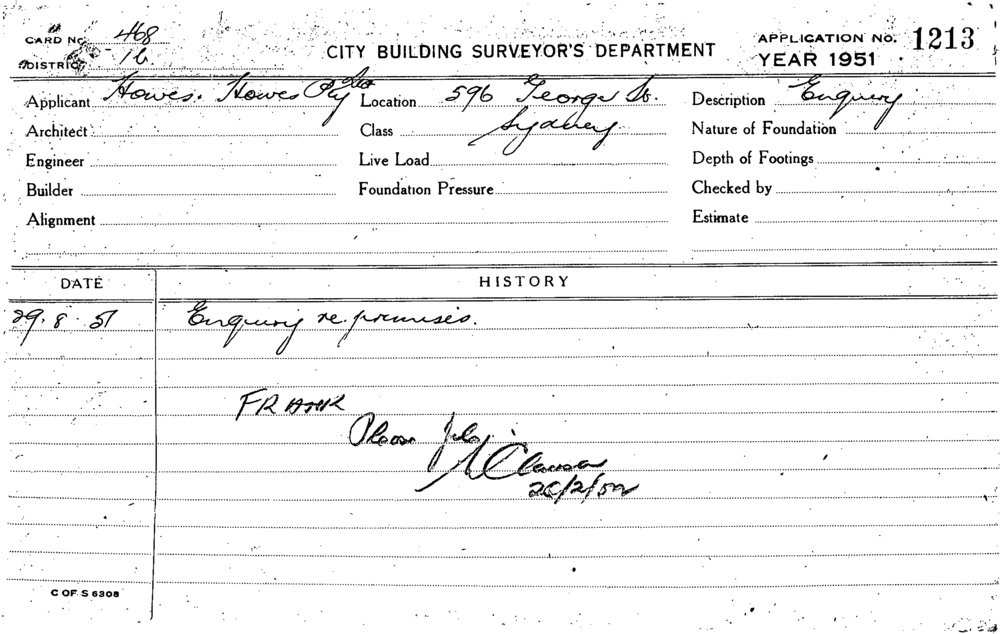 CARD No. 468
DISTRICT 16
CITY BUILDING SURVEYOR'S DEPARTMENT
APPLICATION No. 1213
YEAR 1951
Applicant Howes. Howes Pty Ltd Location 596 George St. Description Enquiry
Architect Class Sydney Nature of Foundation
Engineer Live Load Depth of Footings
Builder Foundation Pressure Checked by
Alignment Estimate
DATE HISTORY
29. 8. 51 Enquiry re premises.
FRANK
Please file
20/2/52
C OF S 6308